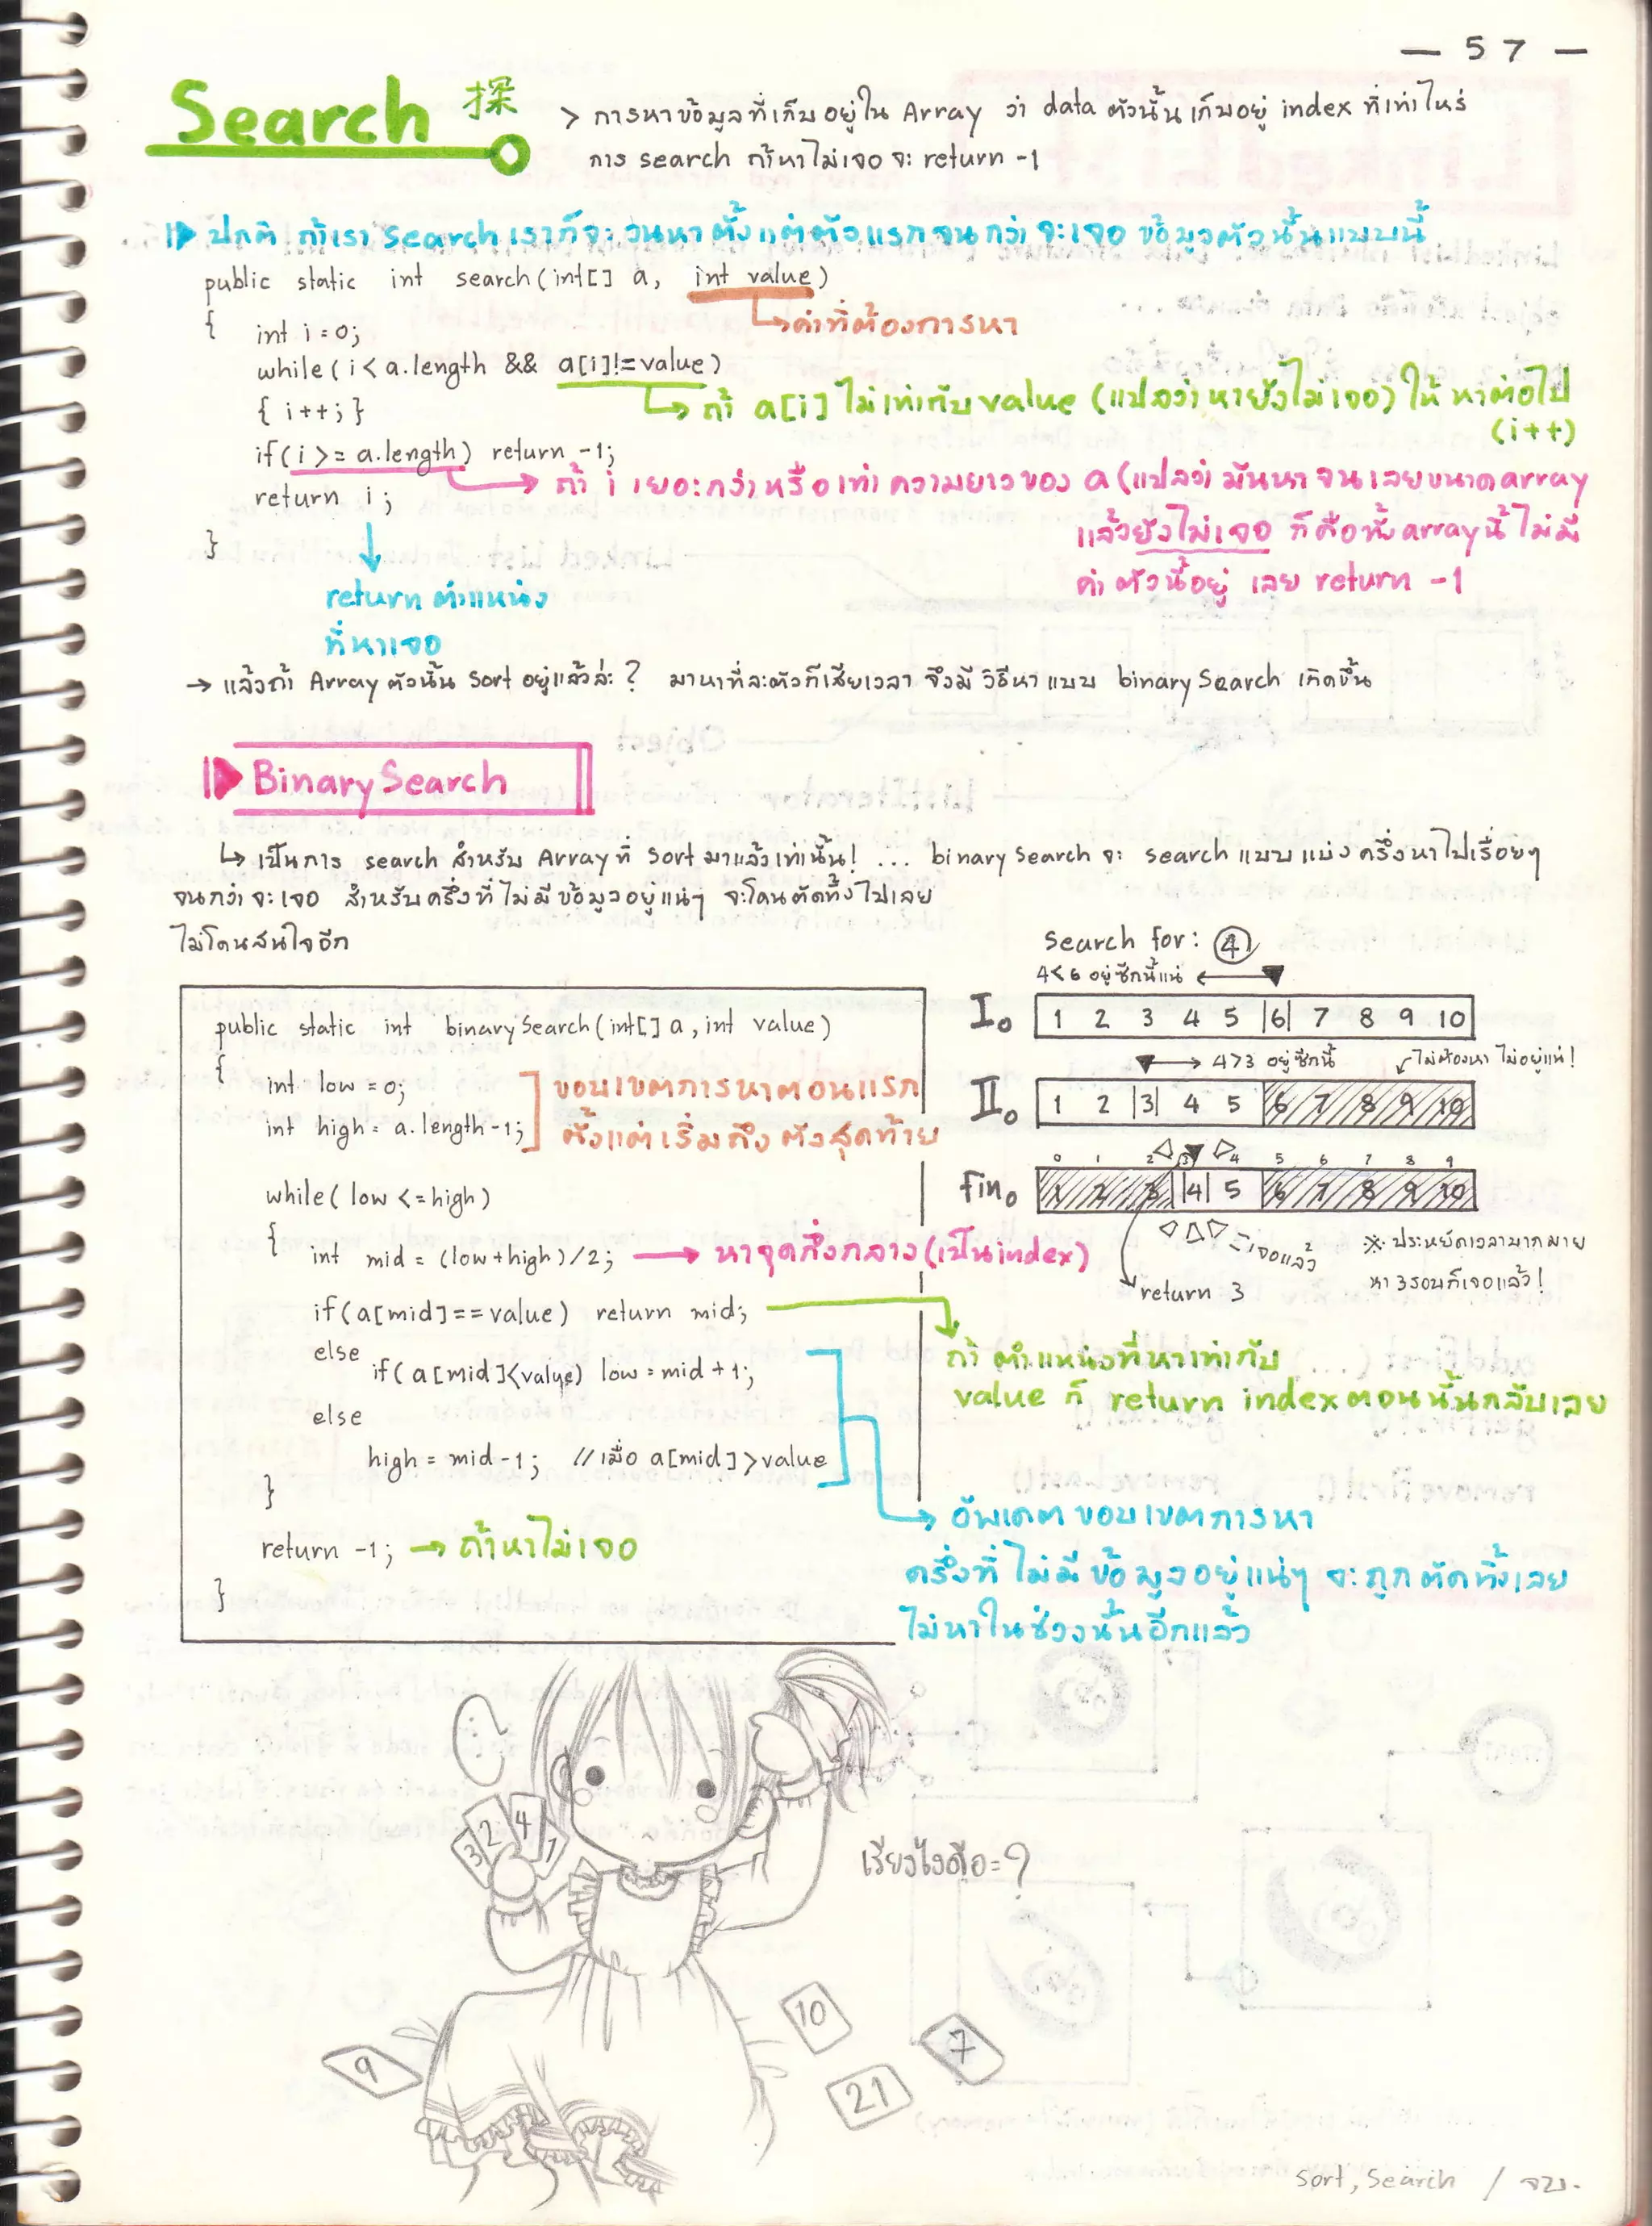 — 57 —
Search 探
> การหาข้อมูลที่เก็บอยู่ใน Array ว่า data ตัวนั้นเก็บอยู่ index ที่เท่าไหร่
การ search ถ้าหาไม่เจอจะ return -1
ปกติ ถ้าเรา search เราก็จะวนหาตั้งแต่ตัวแรกจนกว่าจะเจอข้อมูลตัวนั้นแบบนี้
public static int search(int[] a, int value)
→ค่าที่ต้องการหา
{ int i=0;
while(i< a.length && a[i]!=value)
→ ถ้า a[i] ไม่เท่ากับ value (แปลว่าหายังไม่เจอ) ให้หาต่อไป
(i++)
{ i++; }
if(i >= a.length) return -1;
→ ถ้า i เยอะกว่าหรือเท่าความยาวของ a (แปลว่ามันหาจนเลยขนาด array
แล้วยังไม่เจอ ก็คือทั้ง array นี้ไม่มี
ค่าตัวนี้อยู่ เลย return -1
return i;
}
return ตำแหน่ง
ที่หาเจอ
→ แล้วถ้า Array ตัวนั้น sort อยู่แล้วล่ะ? มาหาทีละตัวก็เสียเวลา จึงมีวิธีหาแบบ binarySearch เกิดขึ้น
BinarySearch
↳ เป็นการ search สำหรับ Array ที่ sort มาแล้วเท่านั้น! ... binarySearch จะ search แบบแบ่งครึ่งหาไปเรื่อยๆ
จนกว่าจะเจอ สำหรับครึ่งที่ไม่มีข้อมูลอยู่แน่ๆ จะโดนตัดทิ้งไปเลย
ไม่โดนสนใจอีก
public static int binarySearch(int[] a, int value)
{
int low = 0;
int high = a.length-1;
ขอบเขตการหาตอนแรก
ตั้งแต่เริ่มถึงตัวสุดท้าย
while( low <= high)
{
int mid = (low+high)/2; → หาจุดกึ่งกลาง (เป็น index)
if(a[mid]==value) return mid;
else
if( a[mid]<value) low = mid + 1;
else
high = mid - 1; //เมื่อ a[mid] > value
}
return -1; → ถ้าหาไม่เจอ
}
search for: ④
4<6 อยู่ซีกนี้แน่ ←
I. 1 2 3 4 5 |6| 7 8 9 10
→ 4>3 อยู่ซีกนี้ ไม่ต้องหา ไม่อยู่แน่!
II. 1 2 |3| 4 5 6 7 8 9 10
0 1 2 3 4 5 6 7 8 9
fin. 1 2 3 |4| 5 6 7 8 9 10
เจอแล้ว
return 3
※ ประหยัดเวลามากมาย
หา 3 รอบก็เจอแล้ว!
ถ้าตำแหน่งที่หาเท่ากับ
value ก็ return index ตอนนั้นกลับเลย
→ อัพเดตขอบเขตการหา
ครึ่งที่ไม่มีข้อมูลอยู่แน่ๆ จะถูกตัดทิ้งเลย
ไม่หาในช่วงนั้นอีกแล้ว
3 2 4 1
เรียงไงดีอ่ะ=?
10
7
9
21
sort, search / จบ.